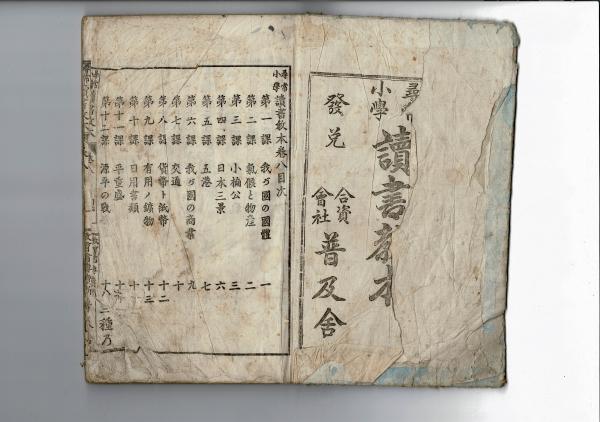 尋常
小學
讀書教本
發兌
合資
會社
普及舍
尋常
小學
讀書教本卷八目次
第一課 我ガ國の國體 一
第二課 氣候と物産 二
第三課 小楠公 三
第四課 日本三景 六
第五課 五港 七
第六課 我ガ國の商業 九
第七課 交通 十
第八課 貨幣ト紙幣 十二
第九課 有用ノ鑛物 十三
第十課 日用書類
第十一課 平重盛
第十二課 源平の戰 十八
二種乃